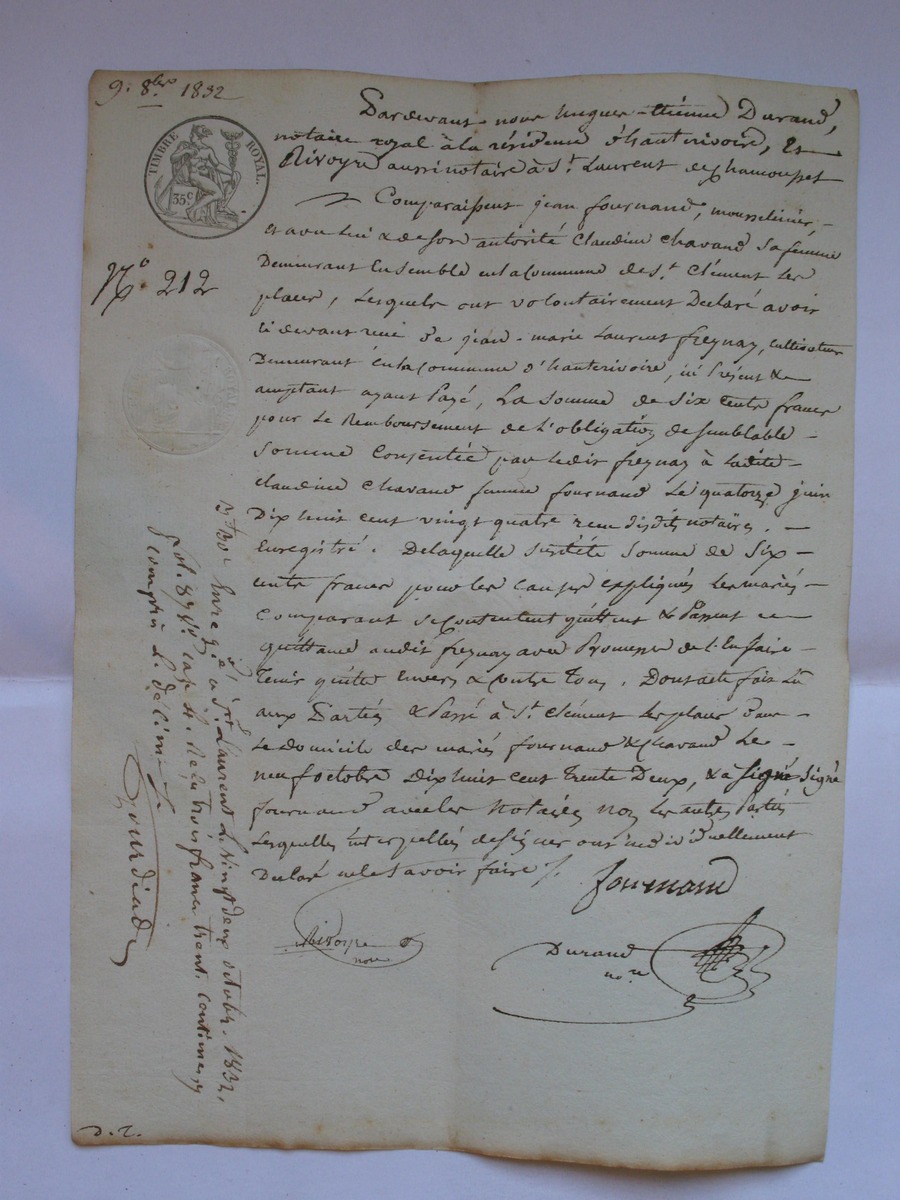 9. 8bre 1832
TIMBRE ROYAL.
35 c
N° 212
Pardevant nous hugues-étienne Durand,
notaire royal à la résidence d'hauterivoire, Et
Rivoyre aussi notaire à St. Laurent de Chamousset
Comparaissent jean fournand, mousselinier,
et avec lui & de son autorité Claudine Chavand sa femme
Demeurant Ensemble en la Commune de St. Clément les
places, Lesquels ont volontairement Déclaré avoir
ci devant reçu de jean-marie Laurent freynay, cultivateur
Demeurant en la Commune d'hauterivoire, ici Présent &
acceptant ayant Payé, La somme de Six Cents francs
pour Le Remboursement de L'obligation de semblable
somme Consentée par ledit freynay à Ladite
Claudine Chavand femme fournand Le quatorze juin
Dix huit cent vingt quatre reçue disdits notaires.
Enregistré. De laquelle susdite Somme de Six
cents francs pour les causes expliquées Les mariés
Comparant se Contentent quittent & Passent
quittance audit freynay avec Promesse de l'En faire
Tenir quitte Envers & Contre Tous. Dont acte fait Lu
aux Parties & Passé à St. Clément les places dans
Le Domicile des mariés fournand & Chavand Le
neuf octobre Dix huit Cent Trente Deux, & a signé signé
fournand avec les Notaires non les autres Parties
Lesquelles interpellées de signer ont individuellement
Déclaré ne le savoir faire /.
fournand
Rivoyre
nore
Durand
no.re
Enregé. à St. Laurent Le vingt deux octobre 1832,
fol. 87 Vo. case 4. Reçu trois francs trente centimes
y compris Le décime /.
D. T.